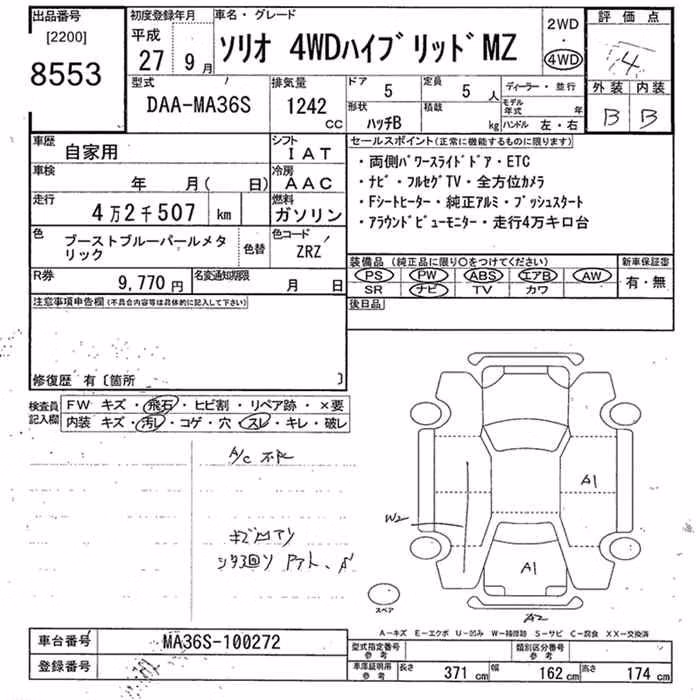 出品番号
[2200]
8553
初度登録年月
平成
27 9月
車名・グレード
ソリオ 4WDハイブリッドMZ
2WD
・
4WD
評価点
4
外装 内装
B B
型式
DAA-MA36S
排気量
1242
CC
ドア 5
定員 5人
形状 ハッチB
積載 kg
ディーラー・並行
モデル年式 年
ハンドル 左・右
車歴
自家用
シフト
IAT
車検
年 月( 日)
冷房
AAC
走行
4万2千507 km
燃料
ガソリン
色
ブーストブルーパールメタリック
色替
色コード
ZRZ
R券
9,770円
名変通知期限
月 日
セールスポイント(正常に機能するものに限ります)
・両側パワースライドドア・ETC
・ナビ・フルセグTV・全方位カメラ
・Fシートヒーター・純正アルミ・プッシュスタート
・アラウンドビューモニター・走行4万キロ台
装備品(純正品に限り○をつけてください)
PS PW ABS エアB AW
SR ナビ TV カワ
新車保証書
有・無
後日品
注意事項申告欄(不具合内容等は具体的に記入して下さい)
修復歴 有〔箇所 〕
検査員記入欄
FW キズ・飛石・ヒビ割・リペア跡・×要
内装 キズ・汚レ・コゲ・穴・スレ・キレ・破レ
A/C 不良
キズ凹アリ
W2
A1
A1
A2
スペア
A-キズ E-エクボ U-凹み W-補修跡 S-サビ C-腐食 XX-交換済
車台番号
MA36S-100272
登録番号
型式指定番号 参考
類別区分番号 参考
車庫証明用 参考
長さ 371 cm 幅 162 cm 高さ 174 cm